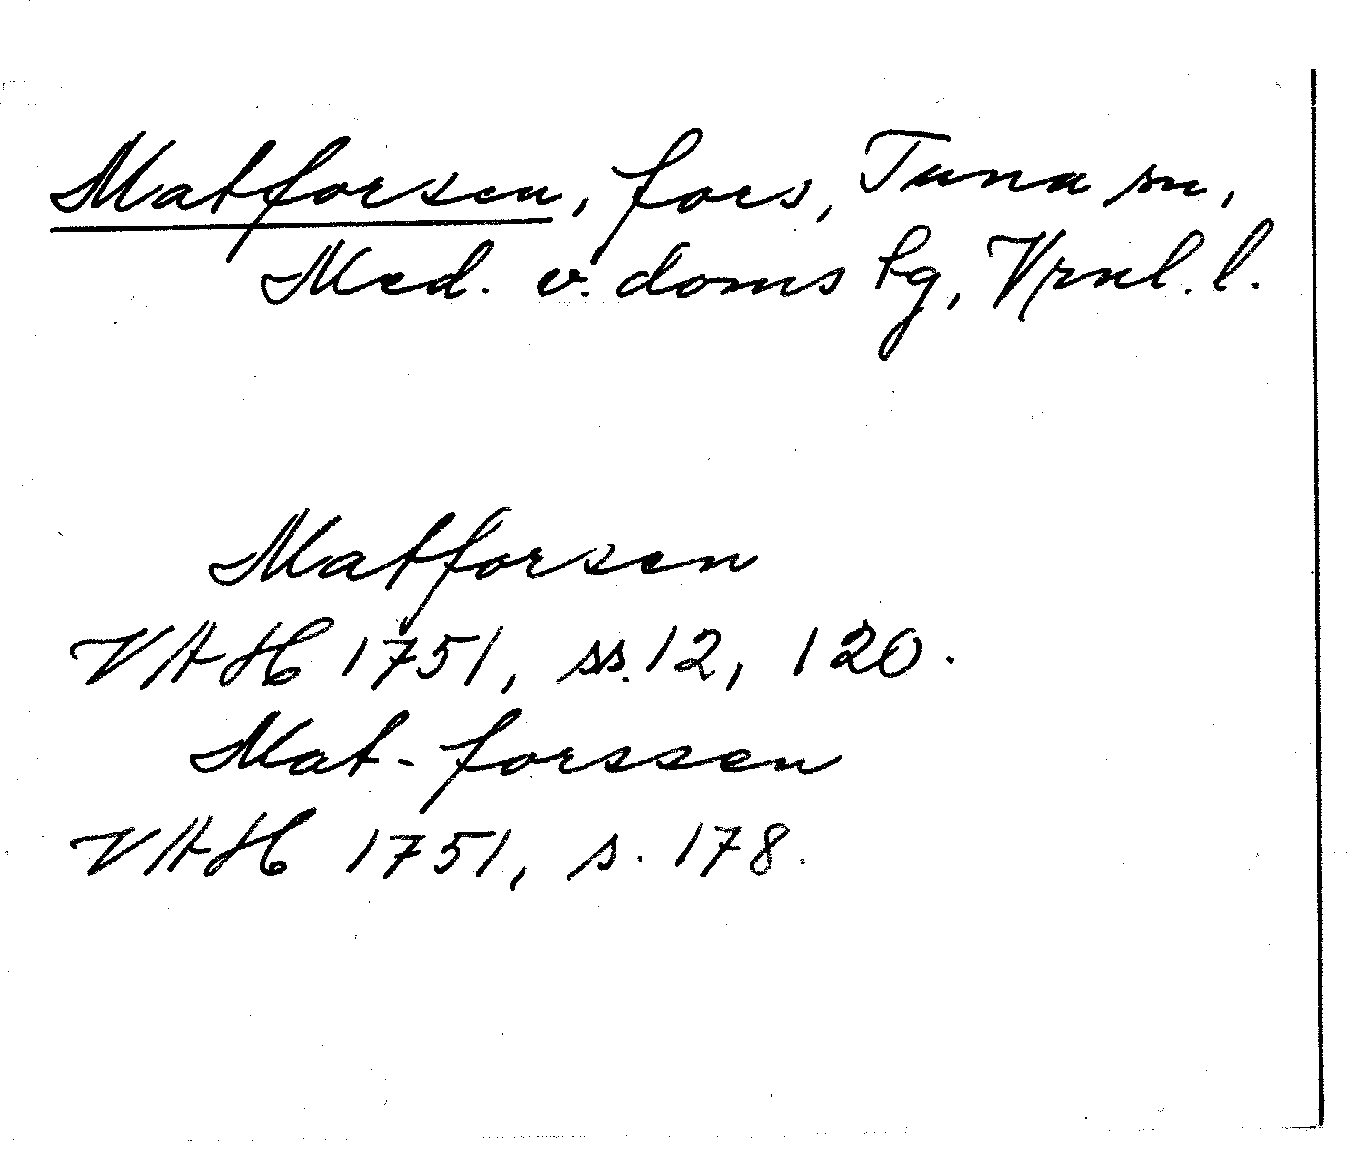 Matforsen, fors, Tuna sn,
Med. v. doms lg, Vrnl. l.
Matforsen
VAH 1751, ss. 12, 120.
Mat-forssen
VAH 1751, s. 178.